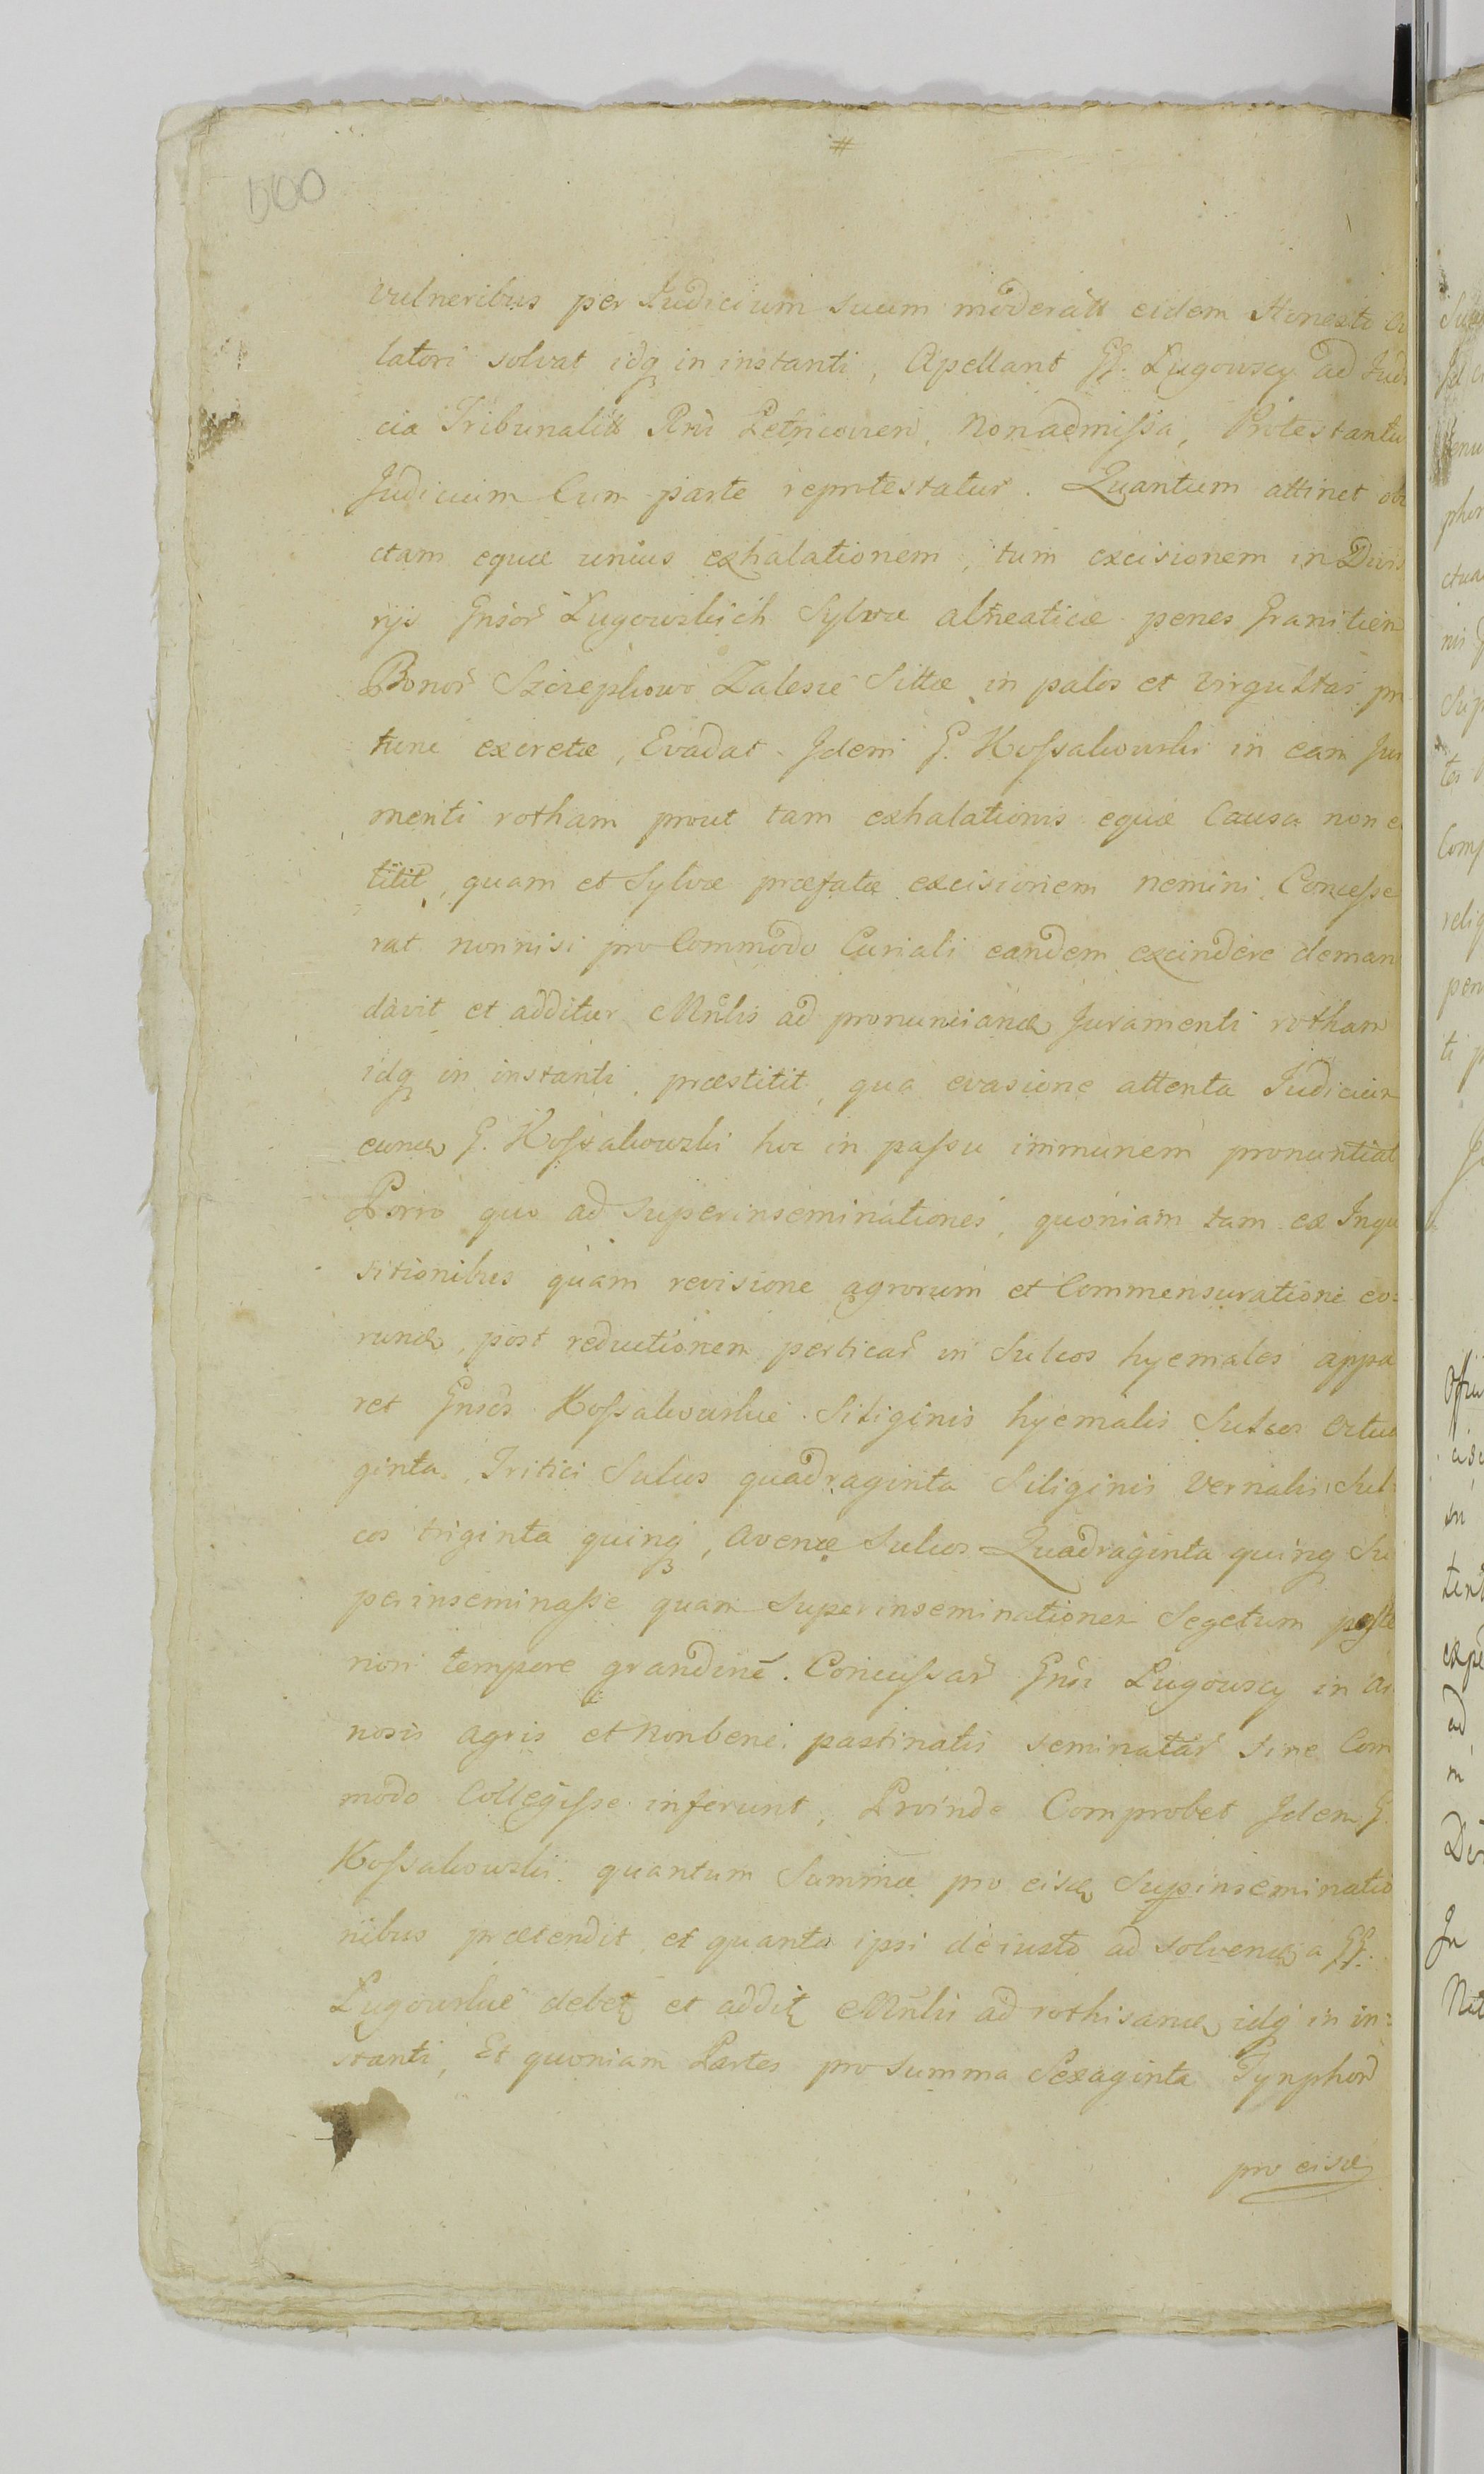 #
500
vulneribus per Judicium suum moderatt eidem Honesto
latori solvat idq in instanti, Apellant GG. Lugowscy ad Judi
cia Tribunalitt Rni Petricovien, Nonadmissa, Protestantu
Judicium Cum parte reprotestatur. Quantum attinet
ctam equæ unius exhalationem, tum excisionem in
Gnsor Lugowskich Sylvæ alneaticæ penes Granitien
Bonor Szczepkowo Zalesie Sittæ in palos et virgultas
tunc excretæ, Evadat Idem G. Kossakowski in eam Jur
menti rotham prout tam exhalationis equæ Causa non e
titit, quam et Sylvæ præfatæ excisionem nemini Concesse
rat nonnisi pro Commodo Curiali eandem excindere deman
davit et additur Mnlis ad pronunciand Juramenti rotham
idq in instanti præstitit, qua evasione attenta Judicium
eund G. Kossakowski hoc in passu immunem pronuntiat
Porro quo ad superinseminationes, quoniam tam ex Inqui
sitionibus quam revisione agrorum et Commensuratione eo=
rund, post reductionem perticar in Sulcos hyemales appa
ret Gnsos Kossakowskie Siliginis hyemalis Sulcos octua
ginta, Tritici Sulcos quadraginta Siliginis vernalis Sul=
cos triginta quinq, avenæ Sulcos Quadraginta quinq Su
perinseminasse quam superinseminationes Segetum poste
riori tempore grandine Concussar Gnsi Lugowscy in
nosis agris et Nonbene pastinatis seminatar sine Com
modo Collegisse inferunt, Proinde Comprobet Idem G.
Kossakowski quantum Summæ pro eisd Supinseminatio
nibus prætendit et quanta ipsi de iusto ad solvend a GG.
Lugowskie debet et addit Mnlis ad rothisand, idq in in=
stanti, Et quoniam Partes pro summa Sexaginta Tynphor
pro eisd